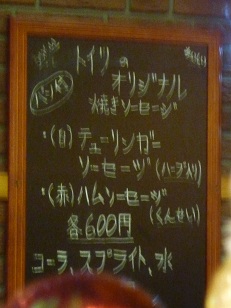 ドイツの
パン付
オリジナル
焼きソーセージ
・(白)テューリンガー
ソーセージ(ハーブ入り)
・(赤)ハムソーセージ
(くんせい)
各600円
コーラ、スプライト、水